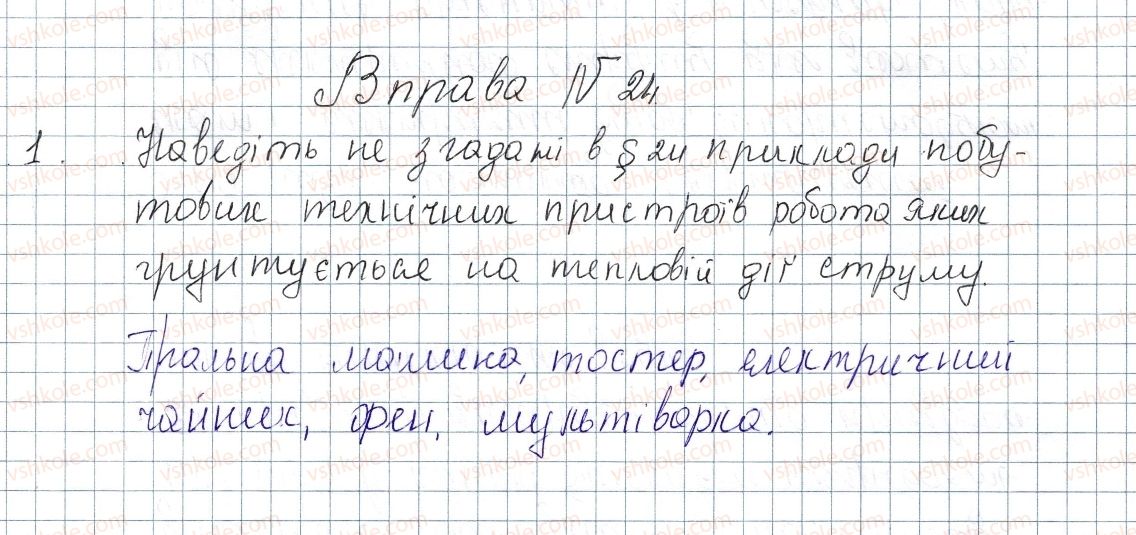 Вправа №24
1. Наведіть не згадані в § 24 приклади побу-
тових технічних пристроїв робота яких
грунтується на тепловій дії струму.
Пральна машина, тостер, електричний
чайник, фен, мультіварка.